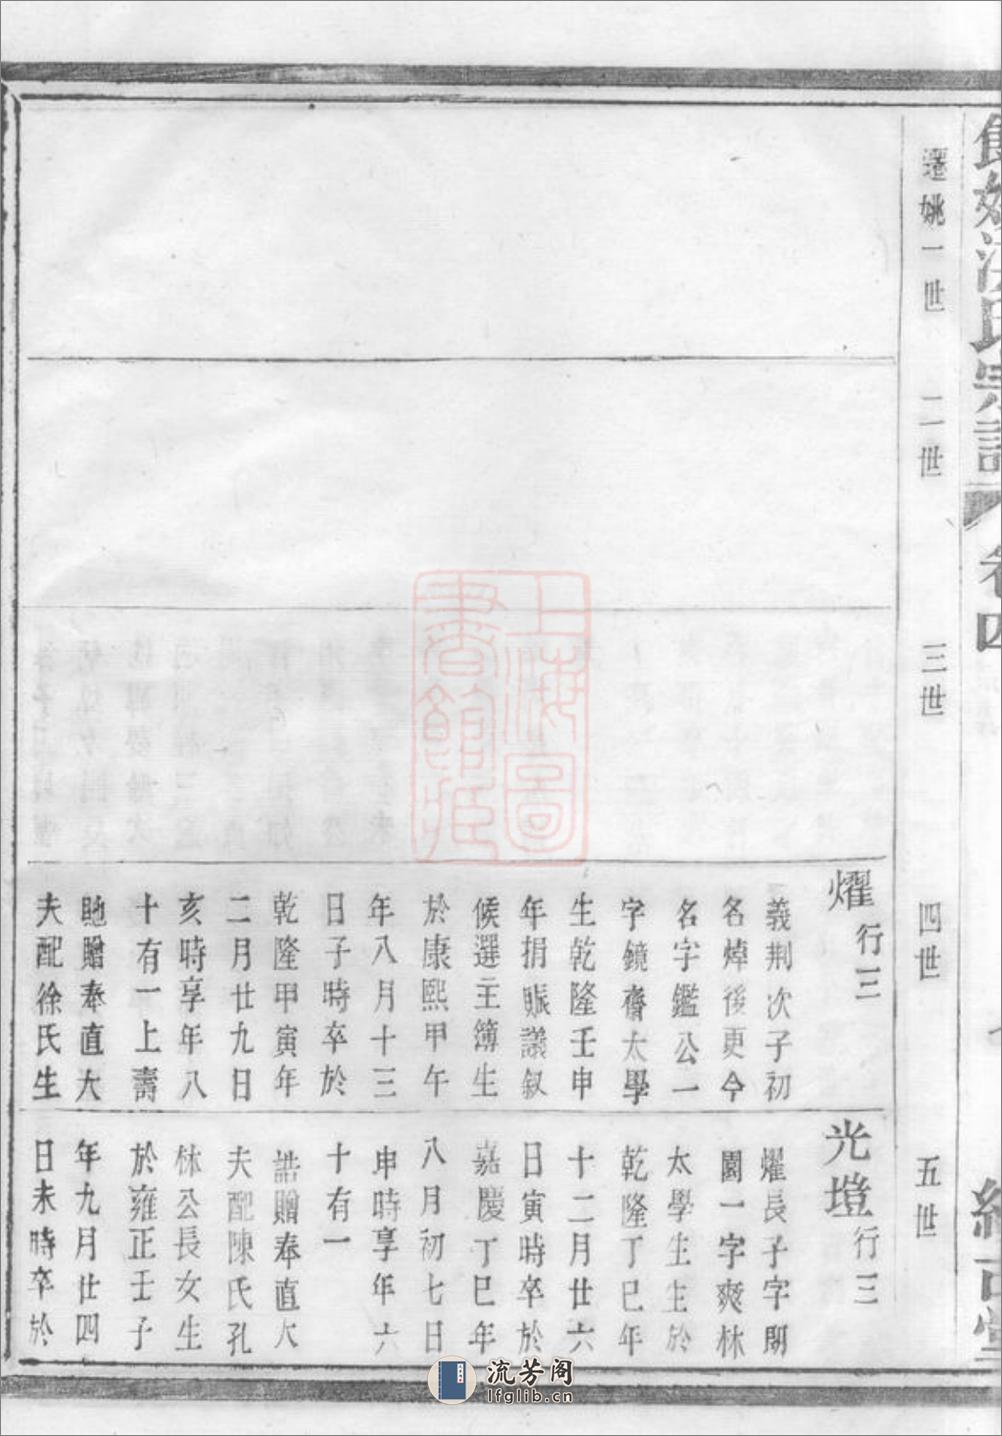 氏宗譜
卷四
遷姚一世
二世
三世
四世
五世
燿行三
義荆次子初
名焯後更今
名字鑑公一
字鏡齋太學
生乾隆壬申
年捐賑議叙
候選主簿生
於康熙甲午
年八月十三
日子時卒於
乾隆甲寅年
二月廿九日
亥時享年八
十有一上壽
貤贈奉直大
夫配徐氏生
光塏行三
燿長子字閬
園一字爽林
太學生生於
乾隆丁巳年
十二月廿六
日寅時卒於
嘉慶丁巳年
八月初七日
申時享年六
十有一
誥贈奉直大
夫配陳氏孔
林公長女生
於雍正壬子
年九月廿四
日未時卒於
上海圖書館藏
流芳阁
lfglib.cn